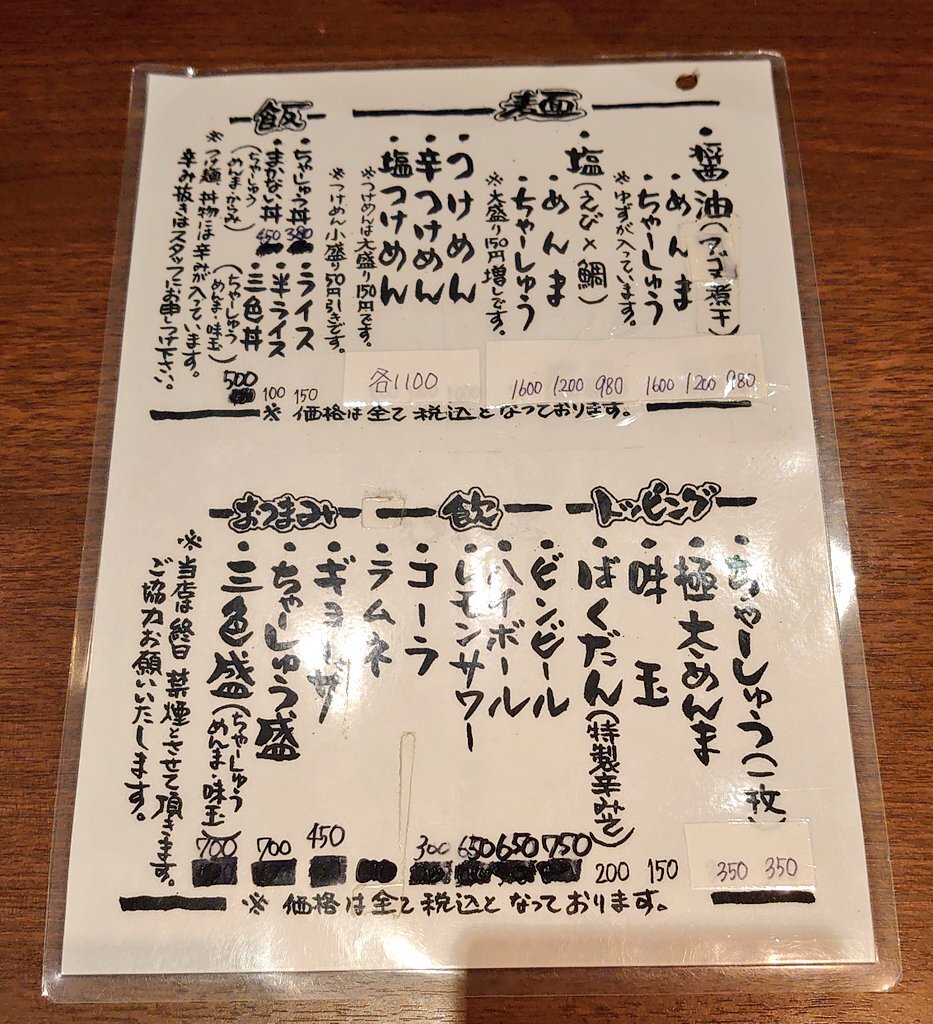 麺
・醤油(アゴ×煮干)
・めんま
・ちゃーしゅう
※ゆずが入っています。
・塩(えび×鯛)
・めんま
・ちゃーしゅう
※大盛り150円増しです。
980
1200
1600
980
1200
1600
・つけめん
・辛つけめん
・塩つけめん
※つけめんは大盛り150円です。
※つけめん小盛り50円引きです。
各1100
飯
・ちゃーしゅう丼
380
・まかない丼
450
(ちゃーしゅう
めんま・からみ)
・ライス
150
・半ライス
100
・三色丼
500
(ちゃーしゅう
めんま・味玉)
※つけ麺、丼物には辛みが入っています。
辛み抜きはスタッフにお申しつけ下さい。
※価格は全て税込となっております。
トッピング
・ちゃーしゅう(一枚)
350
・極太めんま
350
・味玉
150
・ばくだん(特製辛みそ)
200
飲
・ビンビール
750
・ハイボール
650
・レモンサワー
650
・コーラ
300
・ラムネ
おつまみ
・ギョーザ
450
・ちゃーしゅう盛
700
・三色盛(ちゃーしゅう
めんま・味玉)
700
※当店は終日禁煙とさせて頂きます。
ご協力お願いいたします。
※価格は全て税込となっております。